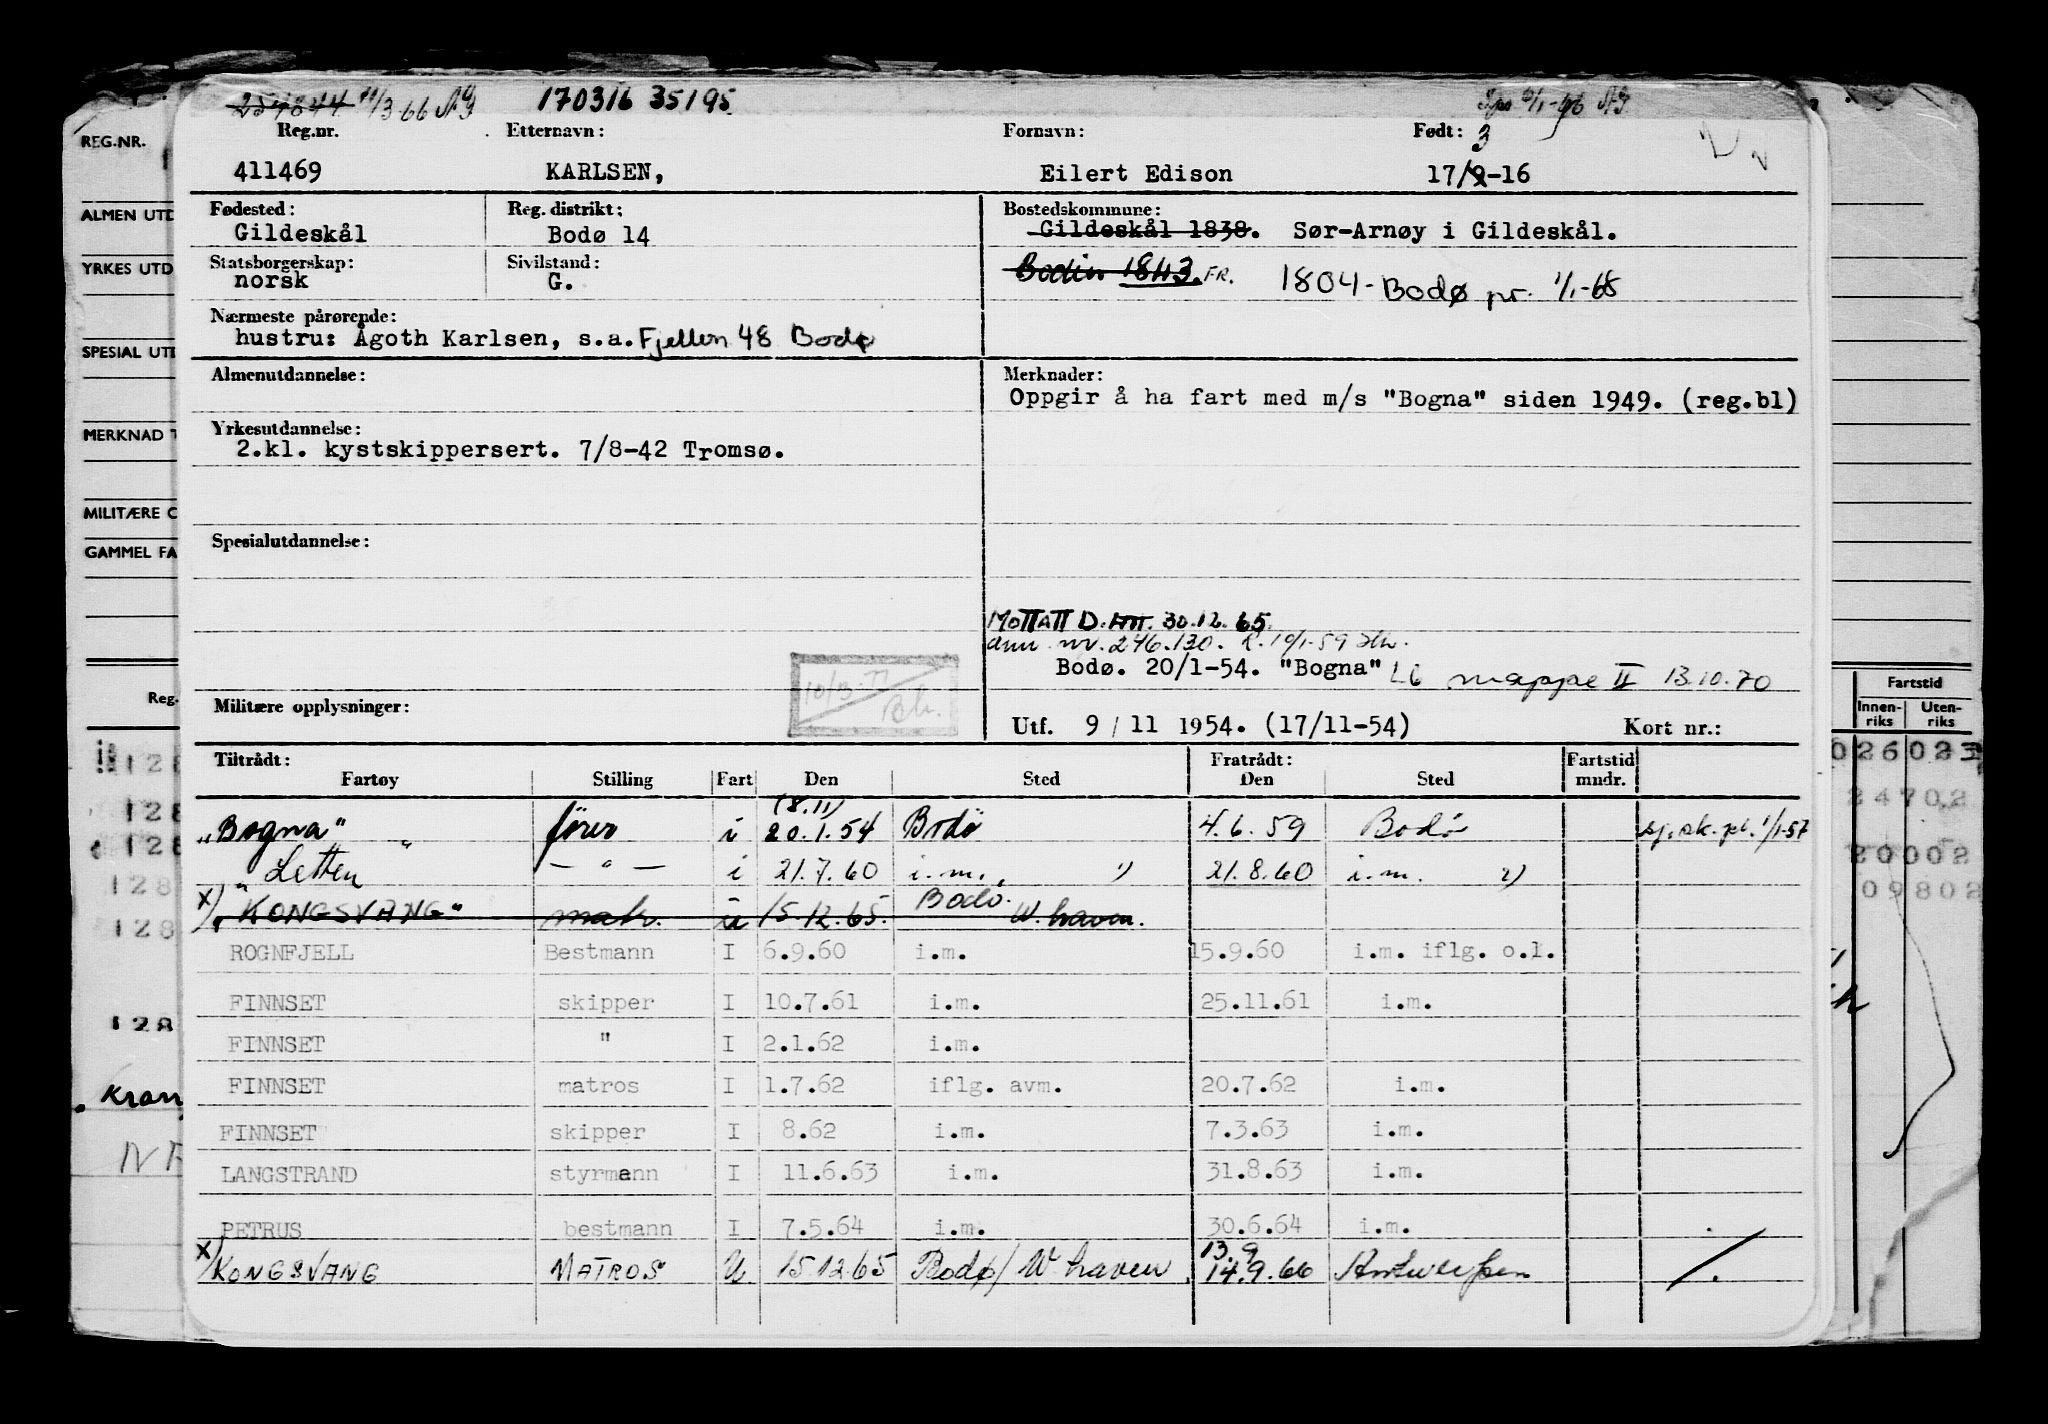 254844 11/3-66 170316 35195
Reg.nr. Etternavn: Fornavn: Født: 3
411469 KARLSEN, Eilert Edison 17/2-16
Fødested: Reg. distrikt: Bostedskommune:
Gildeskål Bodø 14 Gildeskål 1838. Sør-Arnøy i Gildeskål.
Statsborgerskap: Sivilstand: Bodin 1843. FR. 1804-Bodø pr. 1/1-68
norsk G.
Nærmeste pårørende:
hustru: Ågoth Karlsen, s.a. Fjellvn 48 Bodø
Almenutdannelse: Merknader:
Oppgir å ha fart med m/s "Bogna" siden 1949. (reg.bl)
Yrkesutdannelse:
2.kl. kystskippersert. 7/8-42 Tromsø.
Spesialutdannelse:
MOTTATT D. 30.12.65.
nr. 246.130. 10/1-59
Bodø. 20/1-54. "Bogna" L6 mappe II 13.10.70
10/3-71
Militære opplysninger: Utf. 9/11 1954. (17/11-54) Kort nr.:
Tiltrådt: Fratrådt: Fartstid
Fartøy Stilling Fart Den Sted Den Sted mndr.
(8.11)
"Bogna" fører i 20.1.54 Bodø 4.6.59 Bodø 1/1-57
" Letten " — " — i 21.7.60 i.m. 1) 21.8.60 i.m. 2)
x) "KONGSVANG" matr. u 15.12.65. Bodø. W.haven.
ROGNFJELL Bestmann I 6.9.60 i.m. 15.9.60 i.m. iflg. o.l.
FINNSET skipper I 10.7.61 i.m. 25.11.61 i.m.
FINNSET " I 2.1.62 i.m.
FINNSET matros I 1.7.62 iflg. avm. 20.7.62 i.m.
FINNSET skipper I 8.62 i.m. 7.3.63 i.m.
LANGSTRAND styrmann I 11.6.63 i.m. 31.8.63 i.m.
PETRUS bestmann I 7.5.64 i.m. 30.6.64 i.m.
13.9
x) KONGSVANG MATROS U 15.12.65 Bodø/W.haven 14.9.66 Antwerpen
REG.NR.
ALMEN UTD
YRKES UTD
SPESIAL UTD
MERKNAD
MILITÆRE
GAMMEL FA
Reg.
128
128
128
128
128
128
Kran
Fartstid
Innen- Uten-
riks riks
026023
24702
20002
09802